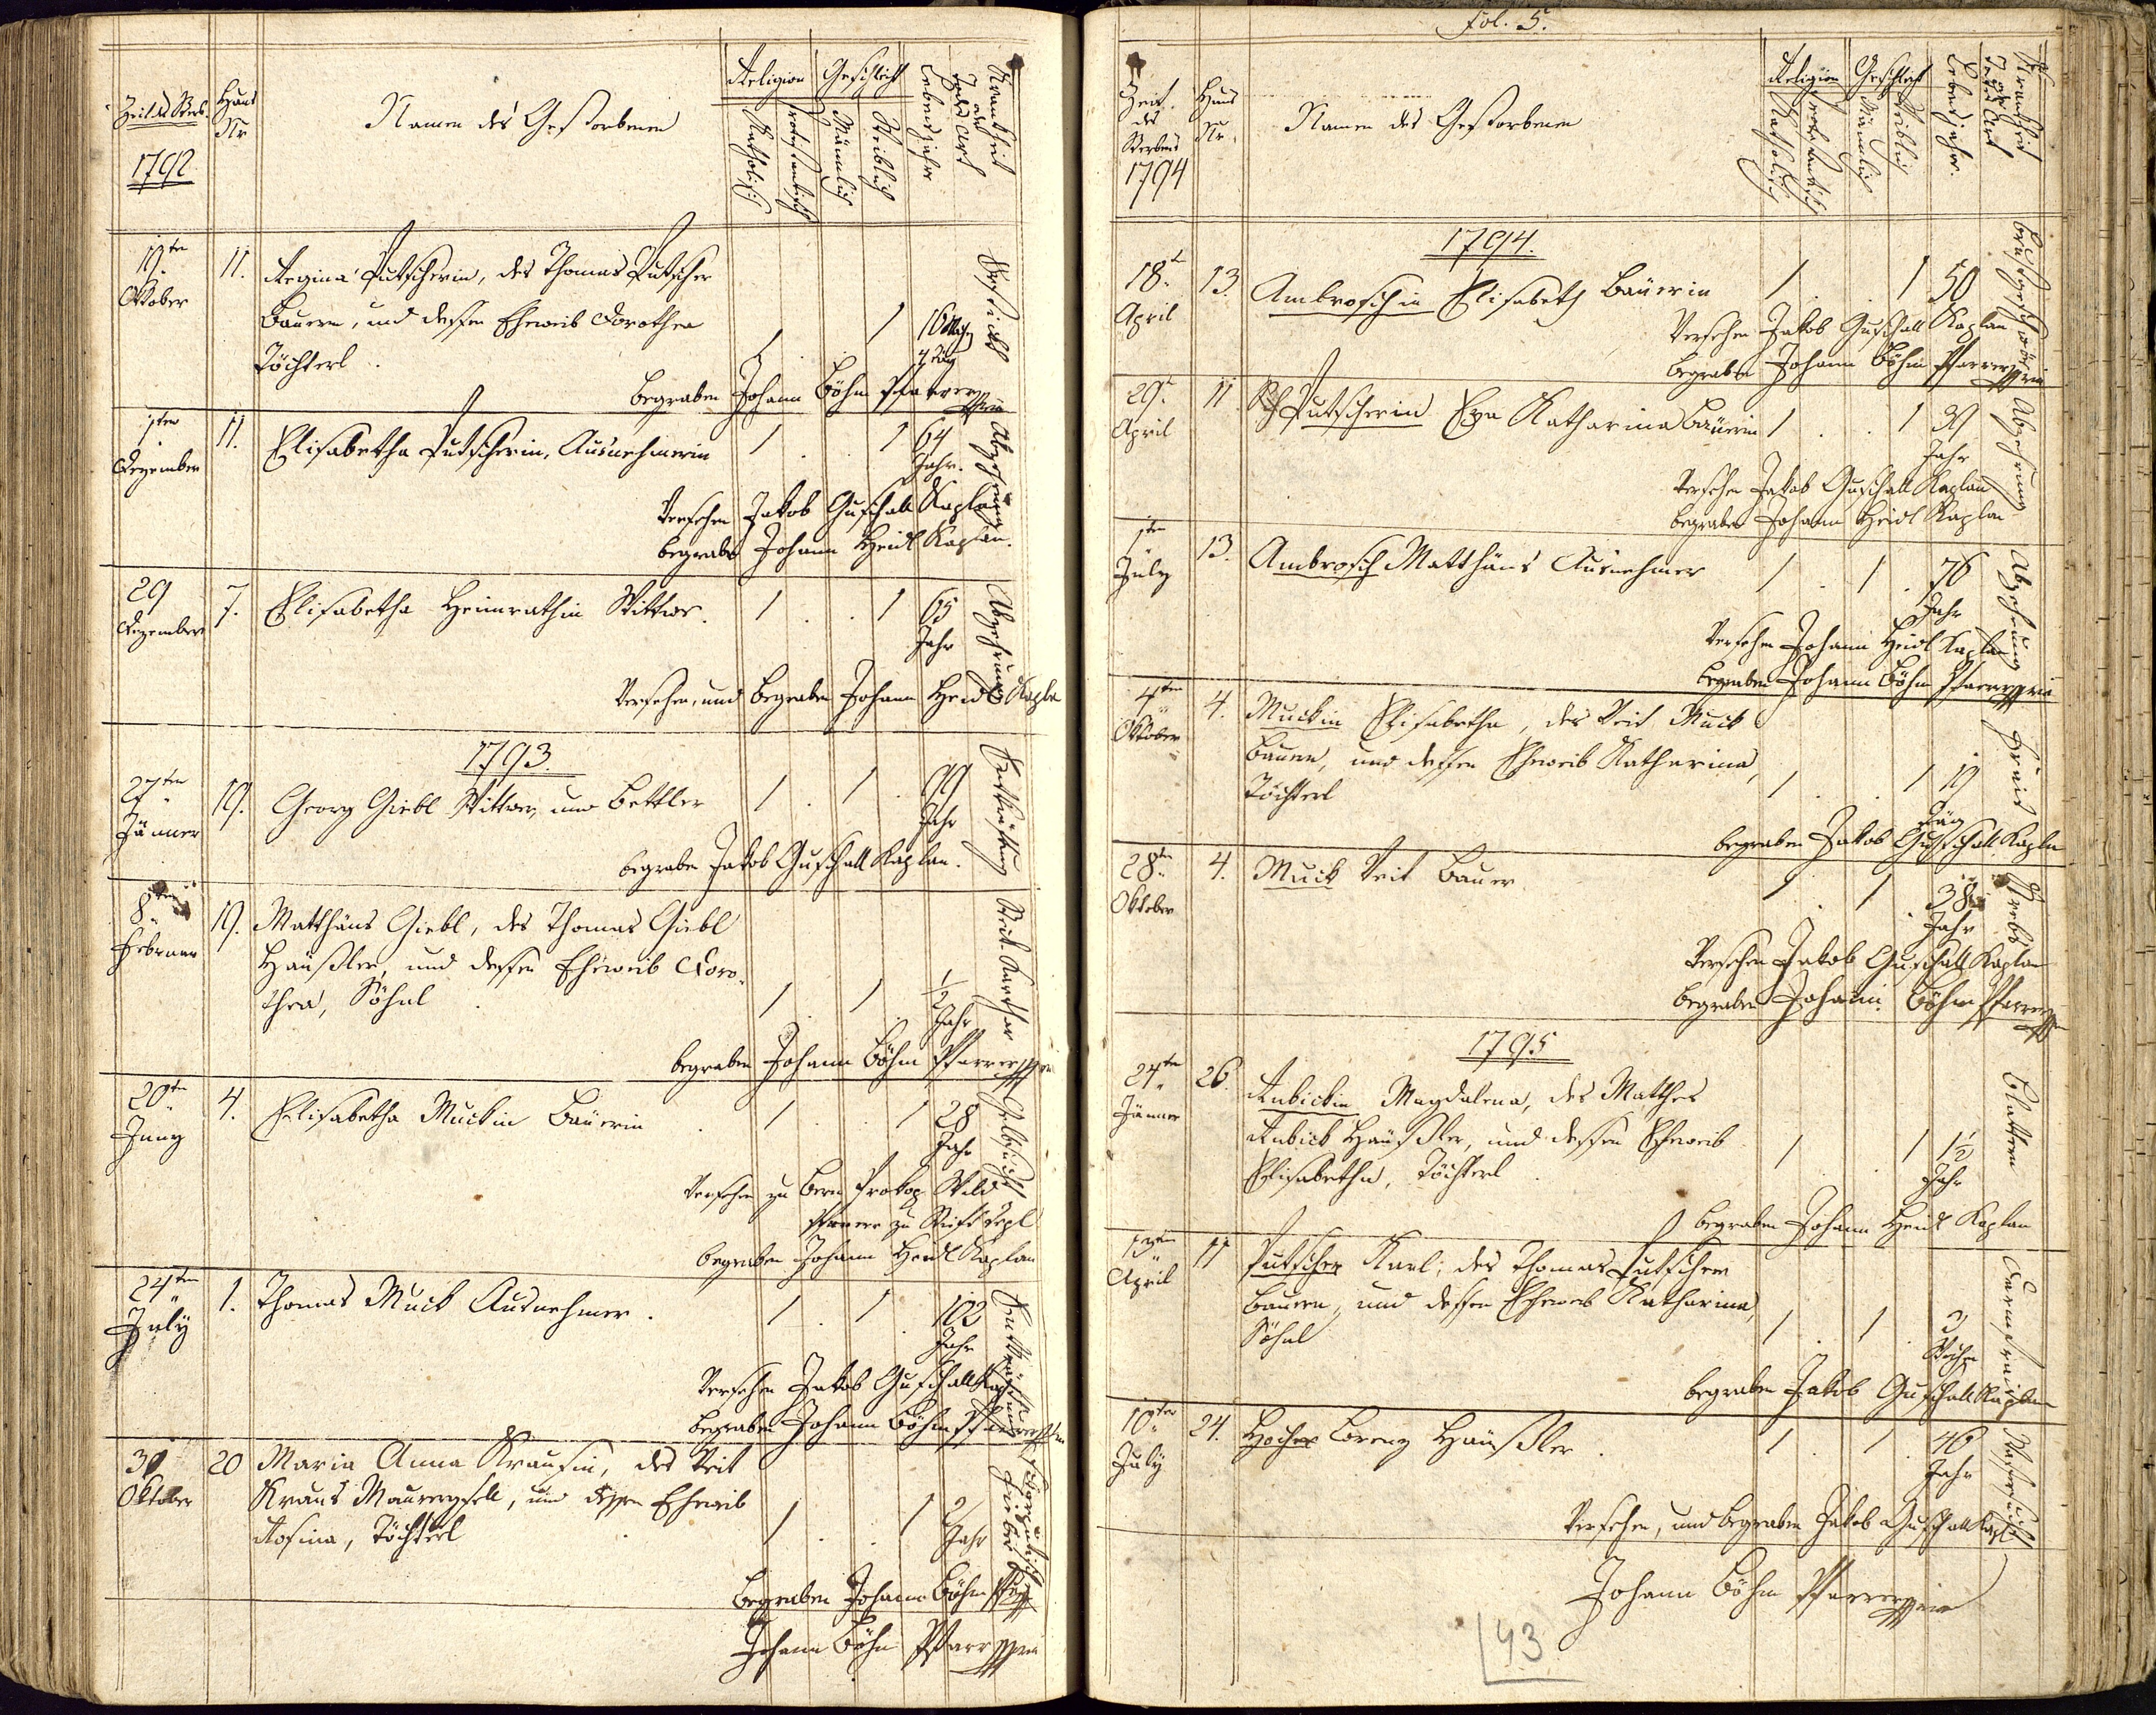 Zeit des Sterb.
1792
Haus
Nr
Namen des Gestorbenen
Religion
Katholisch
Protestantisch
Geschlecht
Männlich
Weiblich
Lebensjahre
Krankheit
und
Todes Art
19ten
Oktober
11.
Regina Putscherin, des Thomas Putscher
Bauern, und dessen Eheweib Dorothea
Töchterl.
1 . . 1
begraben Johann Böhm Pfarrer
1ten
Dezember
11.
Elisabetha Putscherin, Ausnehmerin
1 . . 1 64
Jahr.
Abzehrung
Versehen Jakob Guschall Kaplan
begraben Johann Heidl Kaplan.
29
Dezember
7.
Elisabetha Heimrathin Wittwe.
1 . . 1 65
Jahr
Abzehrung
Versehen, und begraben Johann Heidl Kapla
1793.
27ten
Jänner
19.
Georg Giebl Wittwer, und Bettler
1 . 1 . 99
Jahr
begraben Jakob Guschall Kaplan.
8ten
Februar
19.
Matthäus Giebl, des Thomas Giebl
Häußler, und dessen Eheweib Doro-
thea, Söhnl
1 . 1 . 1/2
Jahr
begraben Johann Böhm Pfarrer
20ten
Juny
4.
Elisabetha Muckin Bäuerin
1 . . 1 28
Jahr
Gelbsucht
Versehen zu Bern Prokop Wild
Pfarrer zu Stift Tepl
begraben Johann Heidl Kaplan
24ten
July
1.
Thomas Muck Ausnehmer.
1 . 1 . 102
Jahr
Entkräftung
Versehen Jakob Guschall Kap
begraben Johann Böhm Pfarrer
30
Oktober
20
Maria Anna Krausin, des Veit
Kraus Maurergsell, und dessen Eheweib
Rosina, Töchterl
1 . . 1 2
Jahr
Fieber
begraben Johann Böhm Pfar
Johann Böhm Pfarrer
Fol. 5.
Zeit
des
Sterbens
1794
Haus
Nr.
Namen des Gestorbenen
Religion
Katholisch
Protestantisch
Geschlecht
Männlich
Weiblich
Lebensjahre.
Krankheit
und
Todes Art
1794.
18t
April
13.
Ambroschin Elisabeth Bäuerin
1 . . 1 50
Versehen Jakob Guschall Kaplan
begraben Johann Böhm Pfarrer
29t
April
11
Putscherin Eva Katharina Bäuerin
1 . . 1 39
Jahr
Abzehrung
Versehen Jakob Guschall Kaplan
begraben Johann Heidl Kaplan
1ten
July
13.
Ambrosch Matthäus Ausnehmer
1 . 1 . 76
Jahr
Abzehrung
Versehen Johann Heidl Kaplan
begraben Johann Böhm Pfarrer
4ten
Oktober
4.
Muckin Elisabetha, des Veit Muck
Bauern, und dessen Eheweib Katharina,
Töchterl
1 . . 1 19
Täg
Frais
begraben Jakob Guschall Kapla
28ten
Oktober
4.
Muck Veit Bauer
1 . 1 . 38
Jahr
Krebs
Versehen Jakob Guschall Kaplan
begraben Johann Böhm Pfarrer
1795
24ten
Jänner
26.
Rubickin Magdalena, des Matthes
Rubick Häußler, und dessen Eheweib
Elisabetha, Töchterl
1 . . 1 1 1/2
Jahr
Blattern
begraben Johann Heidl Kaplan
13ten
April
11
Putscher Karl, des Thomas Putscher
Bauern, und dessen Eheweib Katharina,
Söhnl
1 . 1 . 3
Woche
Darmfrais
begraben Jakob Guschall Kaplan
10ten
July
24.
Hocher Lorenz Häußler.
1 . 1 . 46
Jahr
Wassersucht
Versehen, und begraben Jakob Guschall Kapl
Johann Böhm Pfarrer
43